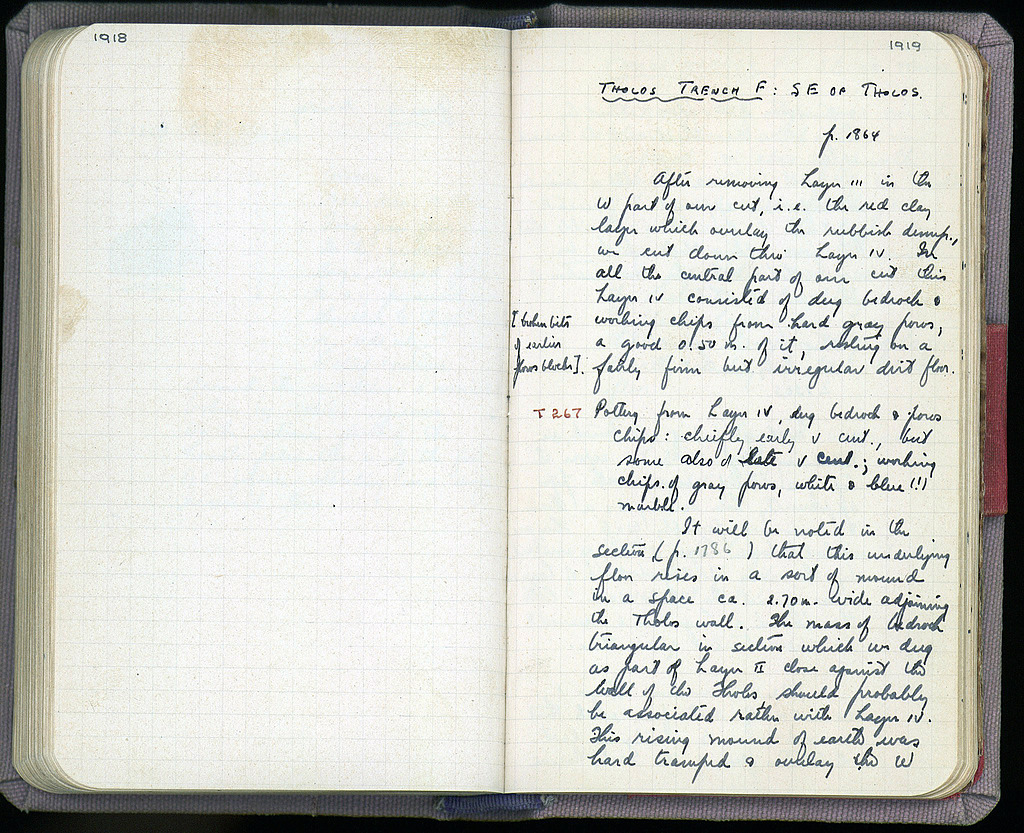 1918
1919
THOLOS TRENCH F: SE OF THOLOS.
p. 1864
After removing Layer III in the
W part of our cut, i.e. the red clay
layer which overlay the rubbish dump,
we cut down thru Layer IV. In
all the central part of our cut this
Layer IV consisted of dug bedrock &
working chips from hard gray poros,
a good 0.50 m. of it, resting on a
fairly firm but irregular dirt floor.
[broken bits
of earlier
poros blocks].
T 267 Pottery from Layer IV, dug bedrock & poros
chips: chiefly early V cent., but
some also of late V cent.; working
chips of gray poros, white & blue (!)
marble.
It will be noted in the
section (p. 1786 ) that this underlying
floor rises in a sort of mound
in a space ca. 2.70 m. wide adjoining
the Tholos wall. The mass of bedrock
triangular in section which we dug
as part of Layer II close against the
wall of the Tholos should probably
be associated rather with Layer IV.
This rising mound of earth was
hard tramped & overlay the W